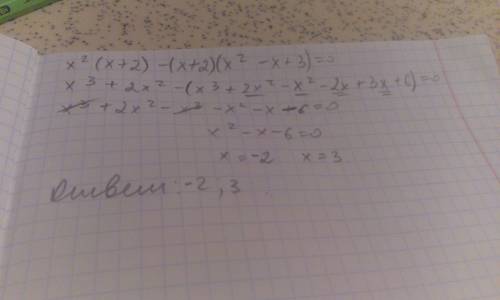 x² (x+2) -(x+2)(x² -x+3)=0
x³ + 2x² -(x³+2x² -x² -2x +3x+6)=0
x³ + 2x² - x³ -x² -x -6=0
x² -x-6=0
x=-2 x=3
Ответ: -2, 3